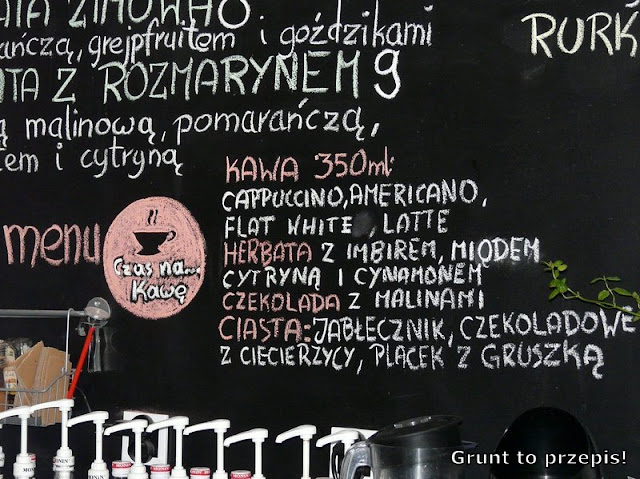 ATA ZIMOWA
RURK
ańczą, grejpfruitem i goździkami
ATA Z ROZMARYNEM 9
ą malinową, pomarańczą,
em i cytryną
KAWA 350ml:
CAPPUCCINO, AMERICANO,
FLAT WHITE, LATTE
menu
Czas na...
Kawę
HERBATA Z IMBIREM, MIODEM
CYTRYNĄ I CYNAMONEM
CZEKOLADA Z MALINAMI
CIASTA: JABŁECZNIK, CZEKOLADOWE
Z CIECIERZYCY, PLACEK Z GRUSZKĄ
Grunt to przepis!